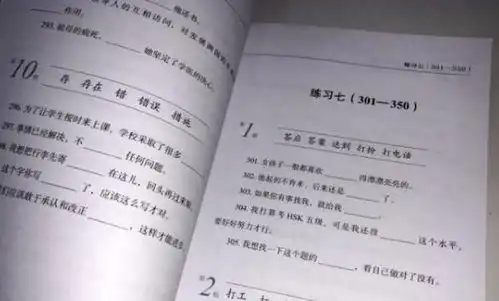 他还书。
导人的互相访问，对发展两国
在用。
293. 叔母的病死，______她坚定了学医的决心。
第10组
存 存在 错 错误 措施
296. 为了让学生按时来上课，学校采取了很多______
297. 事情已经解决，不______任何问题。
我想把行李先寄______在这儿，回头再过来取。
这个字你写______了，应该这么写才对。
们应该敢于承认和改正______，这样才能进步
练习七（301—350）
练习七（301—350）
第1组
答应 答案 达到 打扮 打电话
301. 女孩子一般都喜欢______得漂漂亮亮的。
302. 他起初不肯来，后来还是______了。
303. 如果你有事找我，就给我______。
304. 我打算考HSK五级，可是我还没______这个水平，
要好好努力才行。
305. 我想找一下这个题的______，看自己做对了没有。
第2组
打工